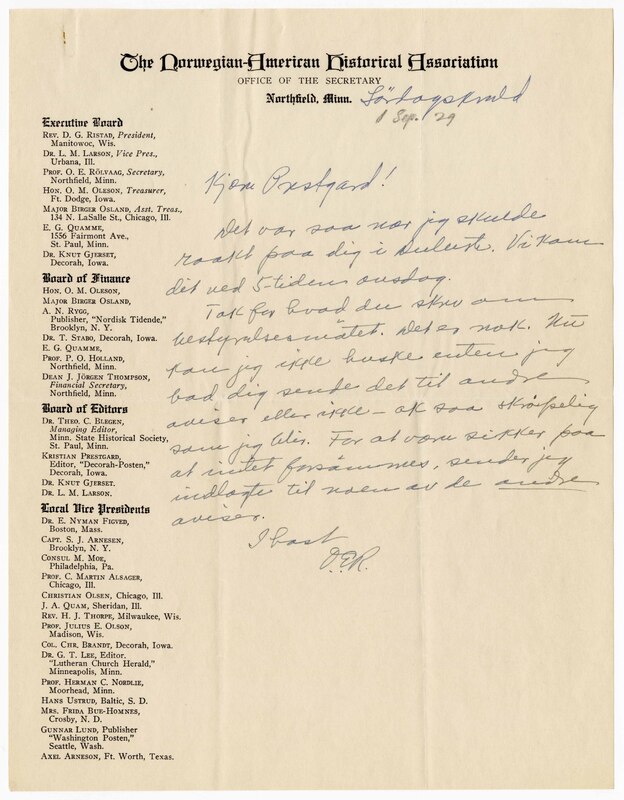 The Norwegian-American Historical Association
OFFICE OF THE SECRETARY
Northfield, Minn. Lördagskveld
1 Sep. 29
Executive Board
REV. D. G. RISTAD, President,
Manitowoc, Wis.
DR. L. M. LARSON, Vice Pres.,
Urbana, Ill.
PROF. O. E. RÖLVAAG, Secretary,
Northfield, Minn.
HON. O. M. OLESON, Treasurer,
Ft. Dodge, Iowa.
MAJOR BIRGER OSLAND, Asst. Treas.,
134 N. LaSalle St., Chicago, Ill.
E. G. QUAMME,
1556 Fairmont Ave.,
St. Paul, Minn.
DR. KNUT GJERSET,
Decorah, Iowa.
Board of Finance
HON. O. M. OLESON,
MAJOR BIRGER OSLAND,
A. N. RYGG,
Publisher, "Nordisk Tidende,"
Brooklyn, N. Y.
DR. T. STABO, Decorah, Iowa.
E. G. QUAMME,
PROF. P. O. HOLLAND,
Northfield, Minn.
DEAN J. JÖRGEN THOMPSON,
Financial Secretary,
Northfield, Minn.
Board of Editors
DR. THEO. C. BLEGEN,
Managing Editor,
Minn. State Historical Society,
St. Paul, Minn.
KRISTIAN PRESTGARD,
Editor, "Decorah-Posten,"
Decorah, Iowa.
DR. KNUT GJERSET.
DR. L. M. LARSON.
Local Vice Presidents
DR. E. NYMAN FIGVED,
Boston, Mass.
CAPT. S. J. ARNESEN,
Brooklyn, N. Y.
CONSUL M. MOE,
Philadelphia, Pa.
PROF. C. MARTIN ALSAGER,
Chicago, Ill.
CHRISTIAN OLSEN, Chicago, Ill.
J. A. QUAM, Sheridan, Ill.
REV. H. J. THORPE, Milwaukee, Wis.
PROF. JULIUS E. OLSON,
Madison, Wis.
COL. CHR. BRANDT, Decorah, Iowa.
DR. G. T. LEE, Editor.
"Lutheran Church Herald,"
Minneapolis, Minn.
PROF. HERMAN C. NORDLIE,
Moorhead, Minn.
HANS USTRUD, Baltic, S. D.
MRS. FRIDA BUE-HOMNES,
Crosby, N. D.
GUNNAR LUND, Publisher
"Washington Posten,"
Seattle, Wash.
AXEL ARNESON, Ft. Worth, Texas.
Kjære Prestgard!
Det var saa nær jeg skulde
raakt paa dig i Duluth. Vi kom
dit ved 5-tiden onsdag.
Tak for hvad du skrev om
bestyrelsesmötet. Det er nok. Nu
kan jeg ikke huske enten jeg
bad dig sende det til andre
aviser eller ikke – ak saa skröpelig
som jeg blir. For at være sikker paa
at intet forsömmes, sender jeg
indlagte til noen av de andre
aviser.
I hast
O.E.R.